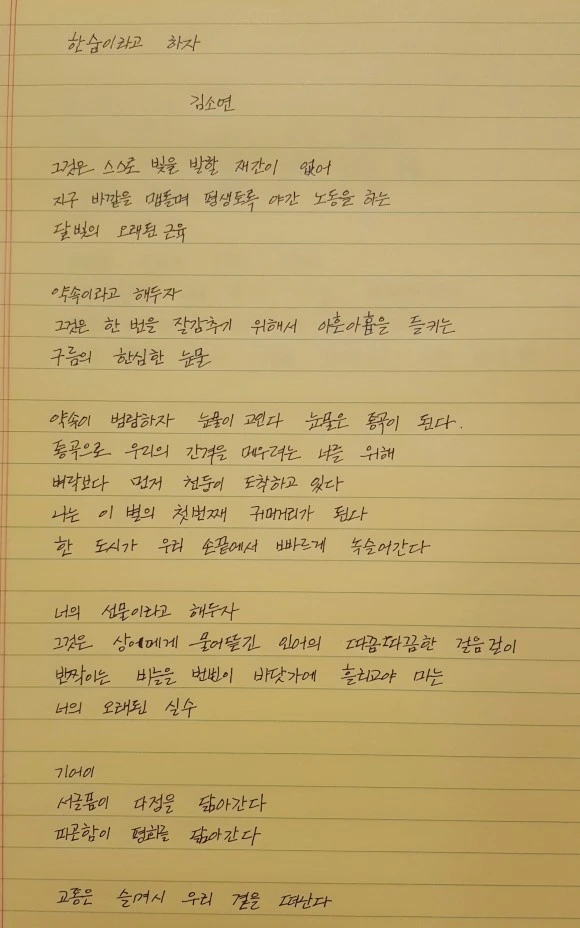 한숨이라고 하자
김소연
그것은 스스로 빛을 발할 재간이 없어
지구 바깥을 맴돌며 평생토록 야간 노동을 하는
달빛의 오래된 근육
약속이라고 해두자
그것은 한 번을 잘감추기 위해서 아흔아홉을 들키는
구름의 한심한 눈물
약속이 범람하자 눈물이 고인다 눈물은 통곡이 된다.
통곡으로 우리의 간격을 메우려는 너를 위해
벼락보다 먼저 천둥이 도착하고 있다
나는 이 별의 첫번째 귀머거리가 된다
한 도시가 우리 손끝에서 빠르게 녹슬어간다
너의 선물이라고 해두자
그것은 상어에게 물어뜯긴 인어의 따끔따끔한 걸음걸이
반짝이는 비늘을 번번이 바닷가에 흘리고야 마는
너의 오래된 실수
기어이
서글픔이 다정을 닮아간다
피곤함이 평화를 닮아간다
고통은 슬며시 우리 곁을 떠난다